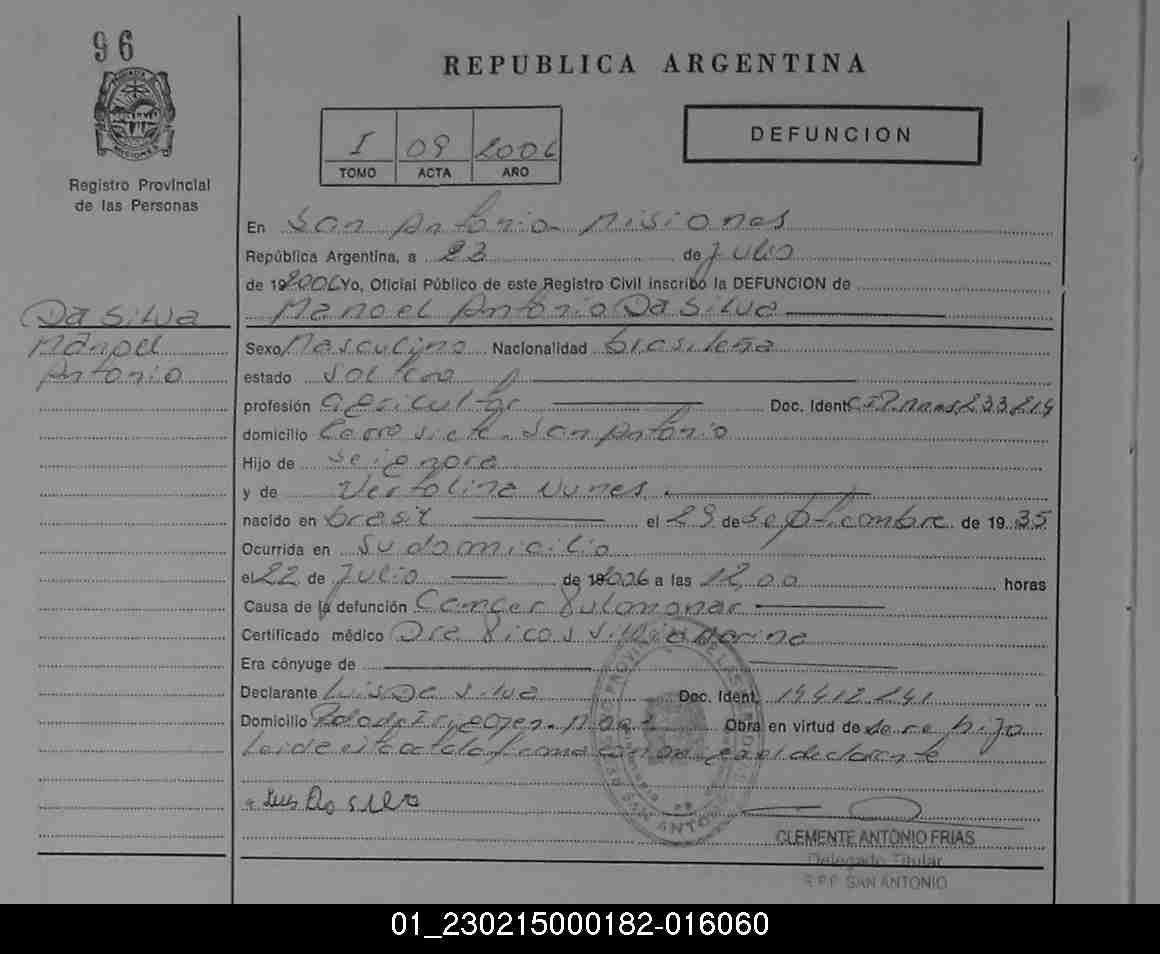 96
REPUBLICA ARGENTINA
I 09 2006
TOMO ACTA AÑO
DEFUNCION
Registro Provincial
de las Personas
En San Antonio Misiones
República Argentina, a 23 de Julio
de 192006 Yo, Oficial Público de este Registro Civil inscribo la DEFUNCION de
Manoel Antonio Da Silva
Da Silva
Manoel
Antonio
Sexo Masculino Nacionalidad brasileña
estado soltero
profesión agricultor Doc. Ident. C.I.P. Mnes 233219
domicilio Cerro siete. San Antonio
Hijo de se ignora
y de Vertolina Nunes
nacido en brasil el 29 de septiembre de 1935
Ocurrida en su domicilio
el 22 de Julio de 2006 a las 12,00 horas
Causa de la defunción Cancer Pulmonar
Certificado médico Dra
Era cónyuge de
Declarante Luis Da Silva Doc. Ident. 19.412.241
Domicilio Obra en virtud de ser hijo
Leida el acta la firma el declarante
Luis Da silva
CLEMENTE ANTONIO FRIAS
Delegado Titular
R.P.P. SAN ANTONIO
01_230215000182-016060